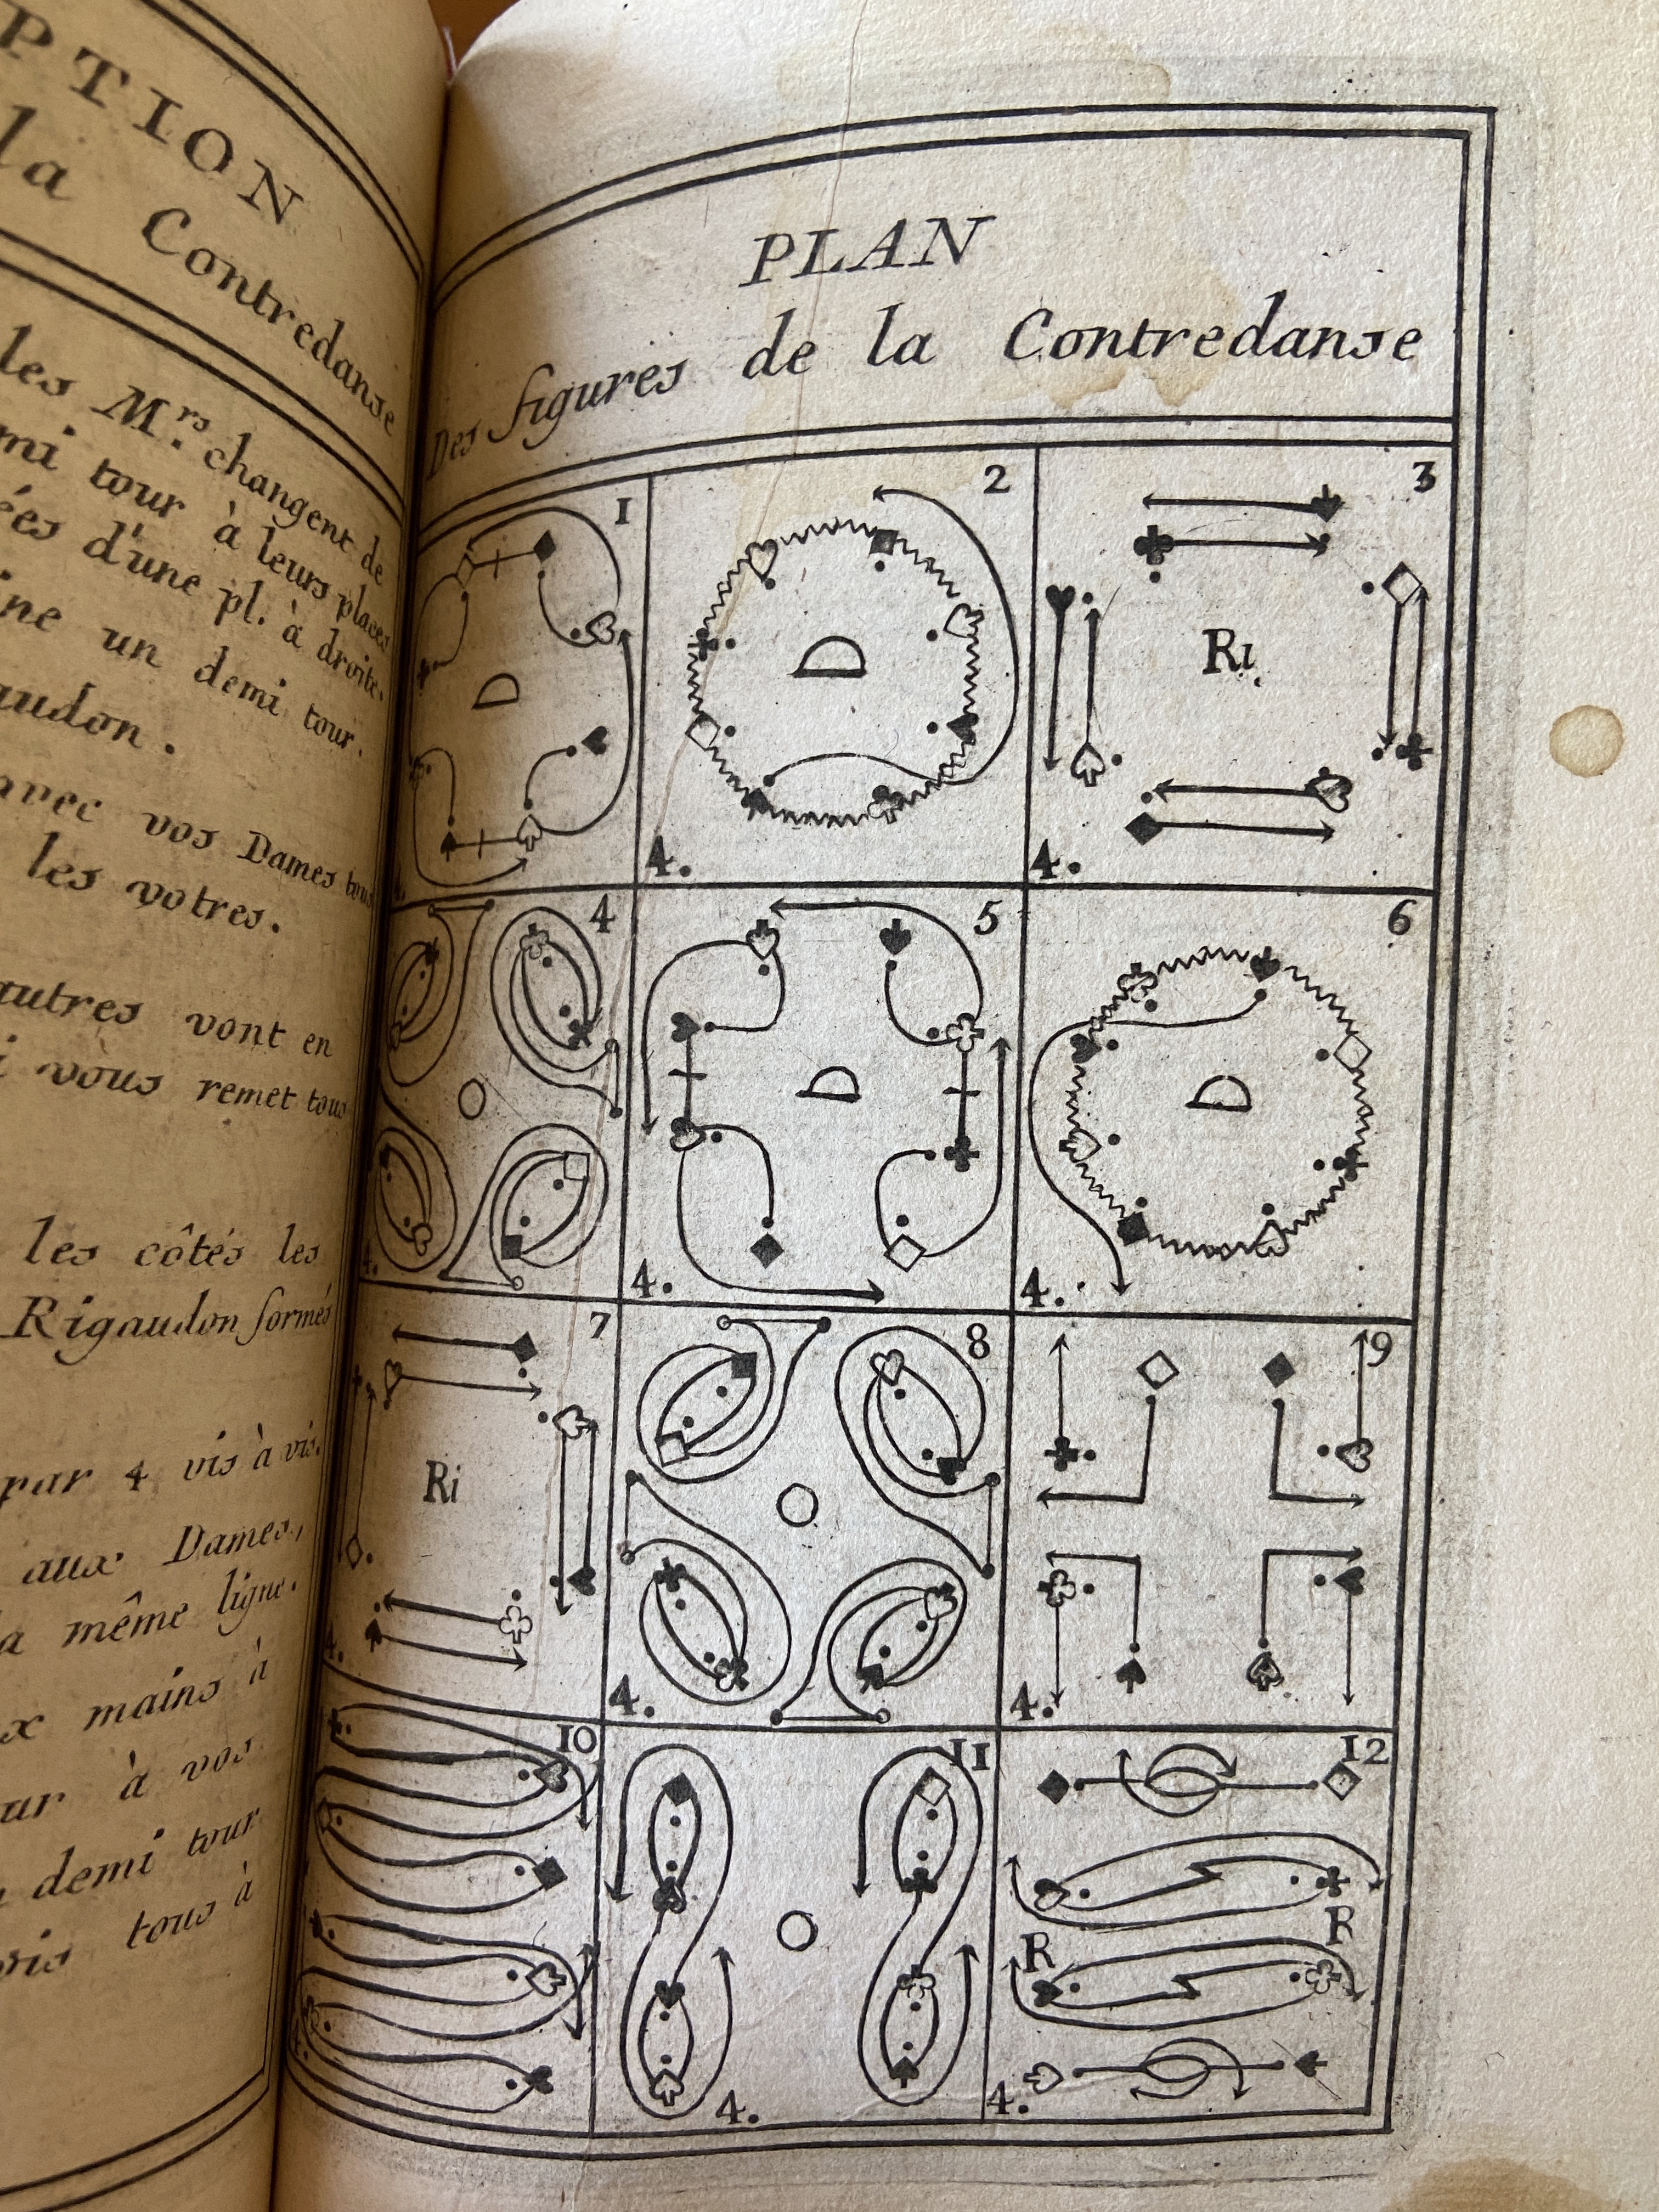 PTION
la Contredanse
les M.rs changent de
mi tour à leurs places
ées d'une pl. à droite.
ine un demi tour.
audon.
avec vos Dames tous
les votres.
autres vont en
i vous remet tous
les côtés les
Rigaudon formés
par 4 vis à vis.
aux Dames,
la même ligne.
x mains à
ur à vos
demi tour
tous à
PLAN
Des figures de la Contredanse
1
D
2
D
4.
3
Ri.
4.
4
4.
5
D
4.
6
D
4.
7
Ri
4.
8
4.
9
4.
10
11
4.
12
R
R
4.